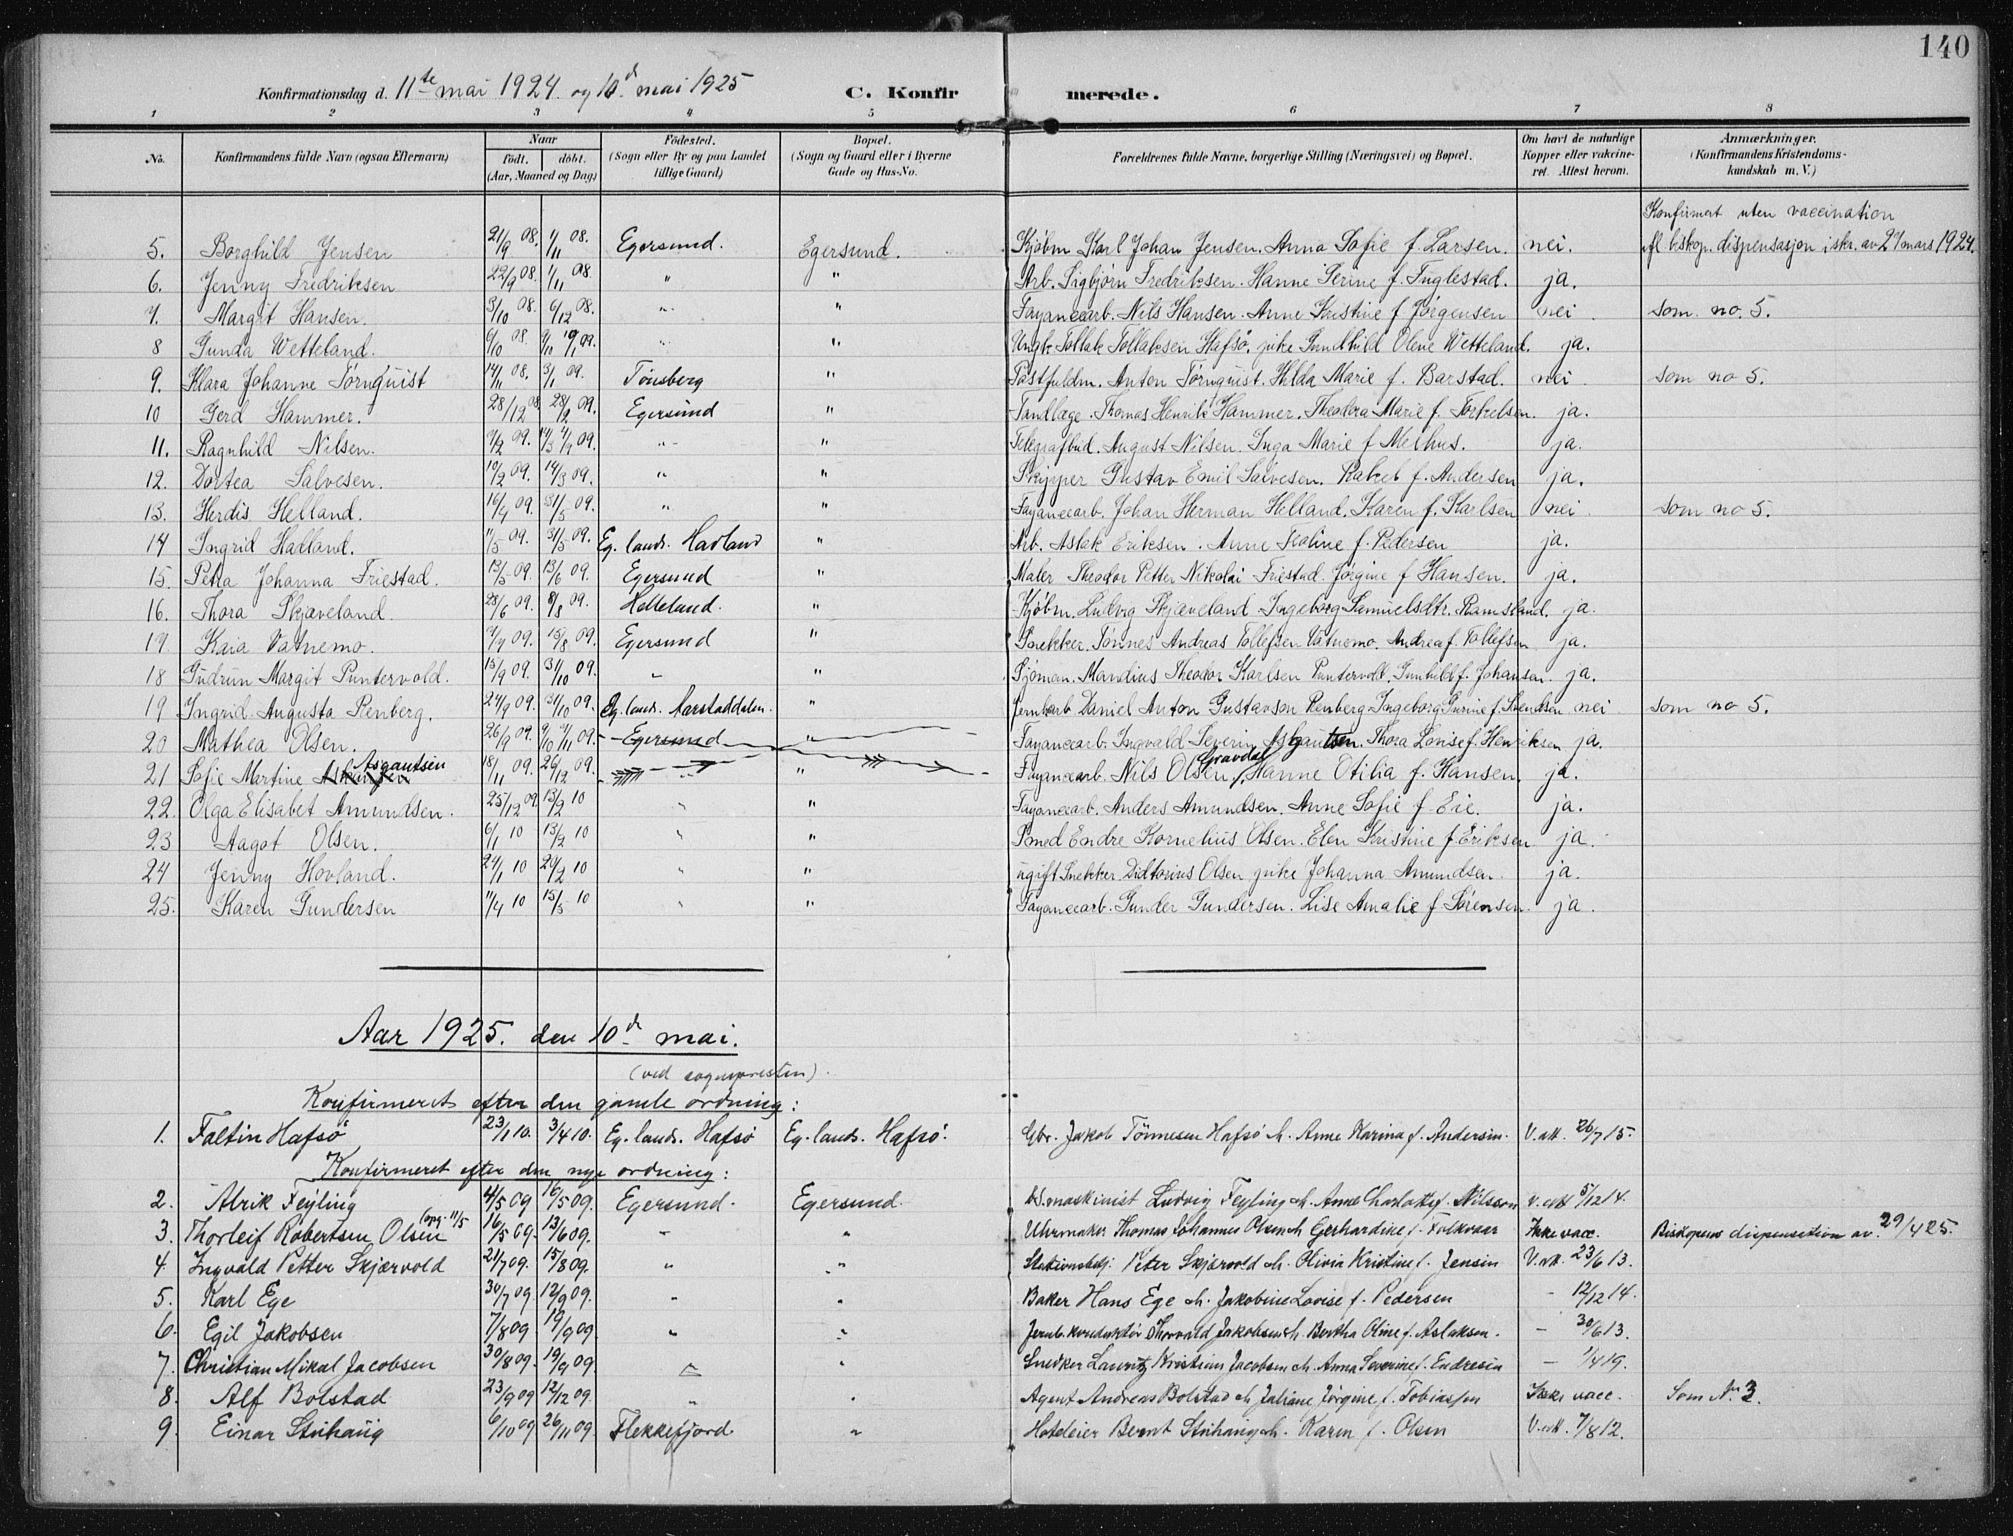 140
Konfirmationsdag d. 11te mai 1924 og 10d mai 1925 C. Konfir merede.
1 2 3 4 5 6 7 8
No. Konfirmandens fulde Navn (ogsaa Efternavn) Naar født. døbt. (Aar, Maaned og Dag) Fødested. (Sogn eller By og paa Landet tillige Gaard) Bopæl. (Sogn og Gaard eller i Byerne Gade og Hus-No. Forældrenes fulde Navne, borgerlige Stilling (Næringsvei) og Bopæl. Om havt de naturlige Kopper eller vakcineret. Attest herom. Anmærkninger. (Konfirmandens Kristendomskundskab m. V.)
Konfirmert uten vaccination
5. Borghild Jensen 21/9 08. 1/11 08. Egersund. Egersund. Kjøbm. Karl Johan Jensen. Anna Sofie f. Larsen. nei. efl biskop. dispensasjon i skr. av 27 mars 1924.
6. Jenny Fredriksen 22/9 08. 1/11 08 " " Arb. Sigbjørn Fredriksen. Hanne Serine f. Fuglestad. ja.
7. Margit Hansen. 3/10 08. 6/12 08. " " Fayancearb. Nils Hansen. Anne Kristine f. Jørgensen nei. som no. 5.
8 Gunda Wetteland. 6/10 08. 10/1 09. " " Ungk. Tollak Tollaksen Hafsø, pike Gundhild Olene Wetteland. ja.
9. Klara Johanne Törnquist 14/11 08. 3/1 09. Tönsberg " Tostfuldm. Anton Törnquist. Hilda Marie f. Barstad. nei som no 5.
10 Gerd Hammer. 28/12 08. 28/2 09. Egersund " Tandlæge. Thomas Henrik Hammer. Theodora Marie f. Torkelsen. ja.
11. Ragnhild Nilsen. 7/2 09. 14/3 09. " " Telegrafbud. August Nilsen. Inga Marie f. Melhus. ja.
12. Dortea Salvesen. 10/2 09. 14/3 09. " " Skipper Gustav Emil Salvesen. Rakel f. Andersen ja.
13. Herdis Helland. 16/4 09. 31/5 09. " " Fayancearb. Johan Herman Helland. Karen f. Karlsen nei som no 5.
14 Ingrid Hadland. 11/5 09. 31/5 09. Eg. lands. Hadland " Arb. Aslak Eriksen. Anne Tealine f. Pedersen ja.
15. Petra Johanna Friestad. 13/5 09. 13/6 09. Egersund " Maler Theodor Petter Nikolai Friestad. Jørgine f Hansen. ja.
16. Thora Skjæveland. 28/6 09. 8/8 09. Helleland. " Kjøbm. Ludvig Skjæveland Ingeborg Samuelsdtr. Ramsland. ja.
17. Kaia Vatnemo. 7/7 09. 15/8 09. Egersund " Snekker. Tönnes Andreas Tollefsen Vatnemo. Andrea f. Tollefsen ja.
18 Gudrun Margit Puntervold. 13/9 09. 31/10 09. " " Sjöman. Mandius Theodor Karlsen Puntervold. Gunhild f. Johansen. ja.
19 Ingrid Augusta Renberg. 24/9 09. 31/10 09. Eg. lands. Aarstaddalen. " Jernbarb Daniel Anton Gustavson Renberg Ingeborg Gurine f. Svendsen nei som no 5.
20 Mathea Olsen. 26/9 09. 7/11 09. Egersund " Fayancearb. Ingvald Severin Asgautsen. Thora Lovise f. Henriksen ja.
21 Sofie Martine Asgautsen 18/11 09. 26/12 09. " " Fayancearb. Nils Olsen Gravdal, Hanne Otilia f. Hansen. ja.
22. Olga Elisabet Amundsen. 25/12 09. 13/2 10 " " Fayancearb. Anders Amundsen. Anne Sofie f. Eie. ja.
23 Aagot Olsen. 6/1 10 13/2 10 " " Smed Endre Kornelius Olsen. Elen Kristine f Eriksen ja.
24 Jenny Hovland. 24/1 10 27/2 10 " " ugift Snekker. Didtorius Olsen pike Johanna Amundsen. ja.
25. Karen Gundersen 11/4 10 15/5 10 " " Fayancearb. Gunder Gundersen. Lise Amalie f Sörensen. ja.
Aar 1925. den 10d mai.
(ved sognepresten).
Konfirmeret efter den gamle ordning:
1. Faltin Hafsö 23/1 10. 3/4 10. Eg. lands. Hafsø Eg. lands. Hafsø. Gbr. Jakob Tönnesen Hafsö &h. Anne Karina f. Andersen. V. att. 26/7 15.
Konfirmeret efter den nye ordning:
2. Alrik Feyling 4/5 09 16/5 09. Egersund. Egersund. D.S. maskinist Ludvig Feyling &h. Anne Charlotte f. Nilsson V. att 5/12 14.
3. Thorleif Robertsen Olsen (opg. 11/5 16/5 09. 13/6 09. " " Uhrmaker Thomas Johannes Olsen &h Gerhardine f. Folkvaar Ikke vacc. Biskopens dispensation av. 29/4 25.
4. Ingvald Petter Skjærvold 21/7 09. 15/8 09. " " Stationsbetj. Peter Skjærvold &h. Olivia Kristine f. Jensen V. att. 23/6 13.
5. Karl Ege 30/7 09. 12/9 09. " " Baker Hans Ege &h. Jakobine Lovise f. Pedersen - 12/12 14.
6. Egil Jakobsen 7/8 09. 19/9 09. " " Jernb. konduktör Thorvald Jakobsen &h. Bertha Oline f. Aslaksen. - 30/6 13.
7. Christian Mikal Jacobsen 30/8 09. 19/9 09. " " Snedker Lauritz Kristian Jacobsen &h. Anna Severine f. Endresen - 1/4 19.
8. Alf Bolstad 23/9 09 12/12 09. " " Agent Andreas Bolstad &h Juliane Jørgine f. Tobiassen Ikke vacc. Som Nr 3.
9. Einar Stuhaug 6/10 09 26/11 09. Flekkefjord " Hoteleier Bernt Stuhaug &h. Karen f. Olsen V. att. 7/8 12.